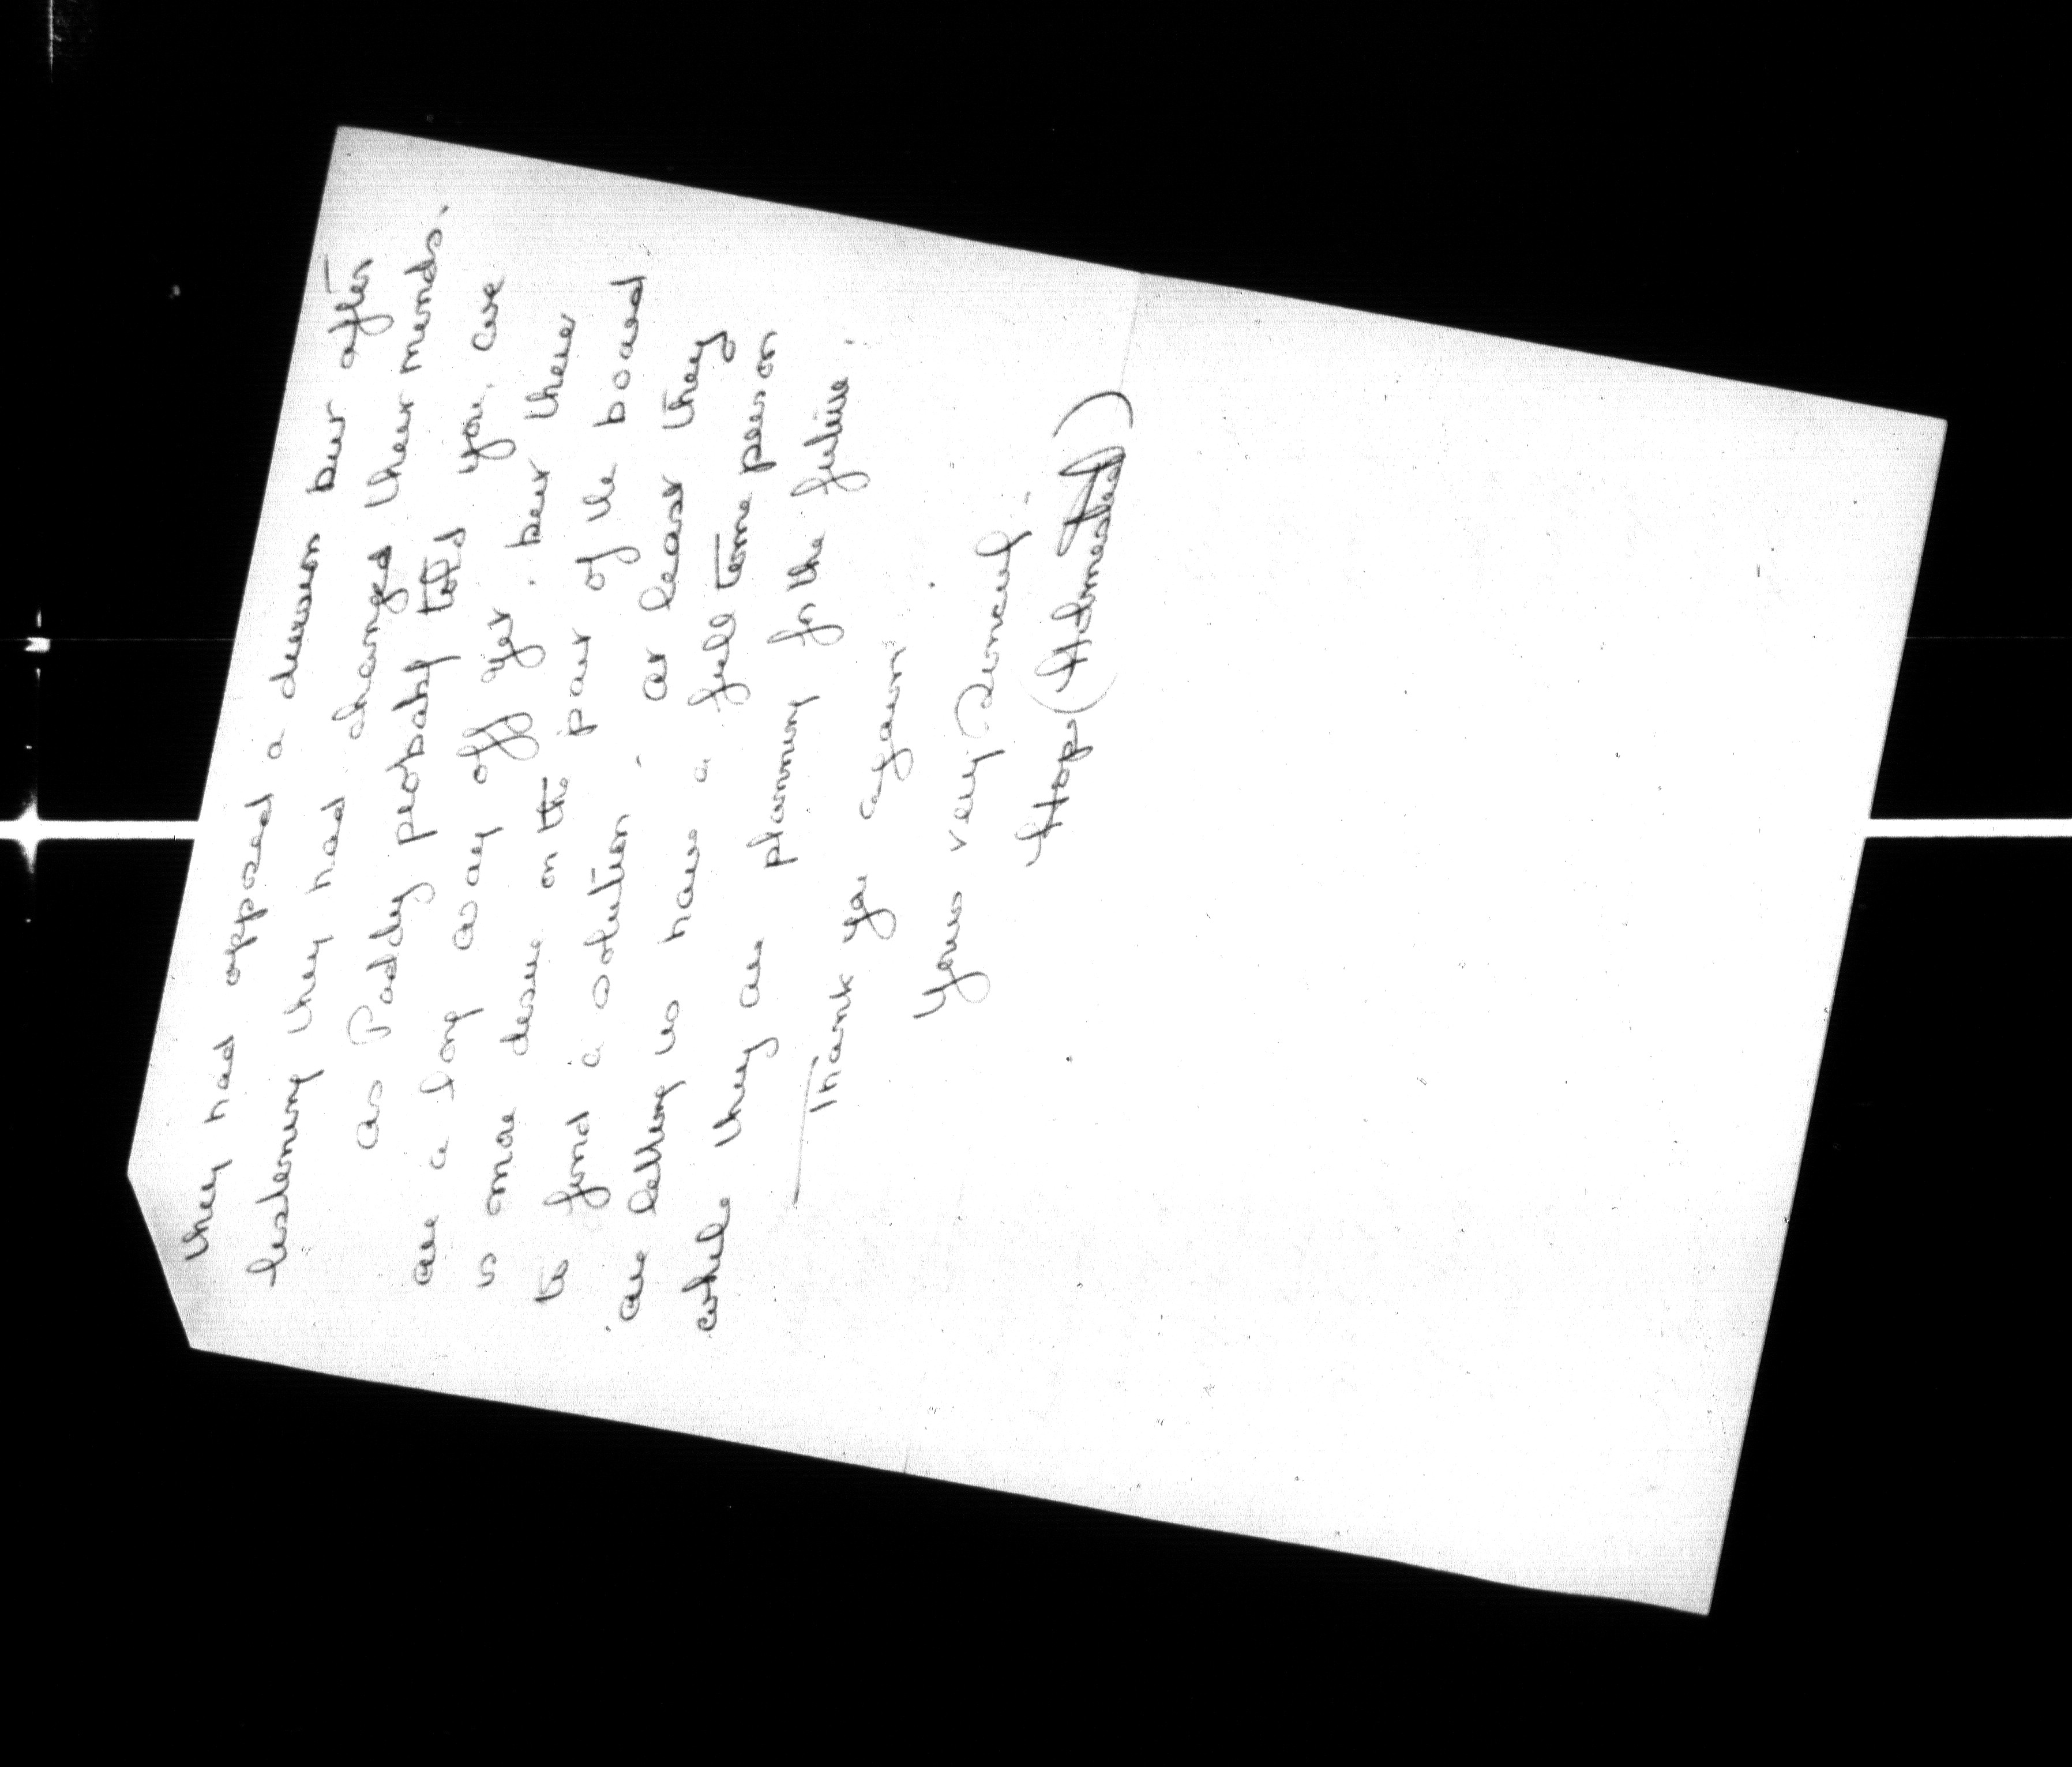 they had opposed a decision but after
listening they had changed their minds.
as Paddy probably told you, we
are a long way off yet, but there
is more desire on the part of the board
to find a solution, at least they
are letting us have a full time person
while they are planning for the future.
Thank you again
Yours very Sincerely -
Hope (Holmested)